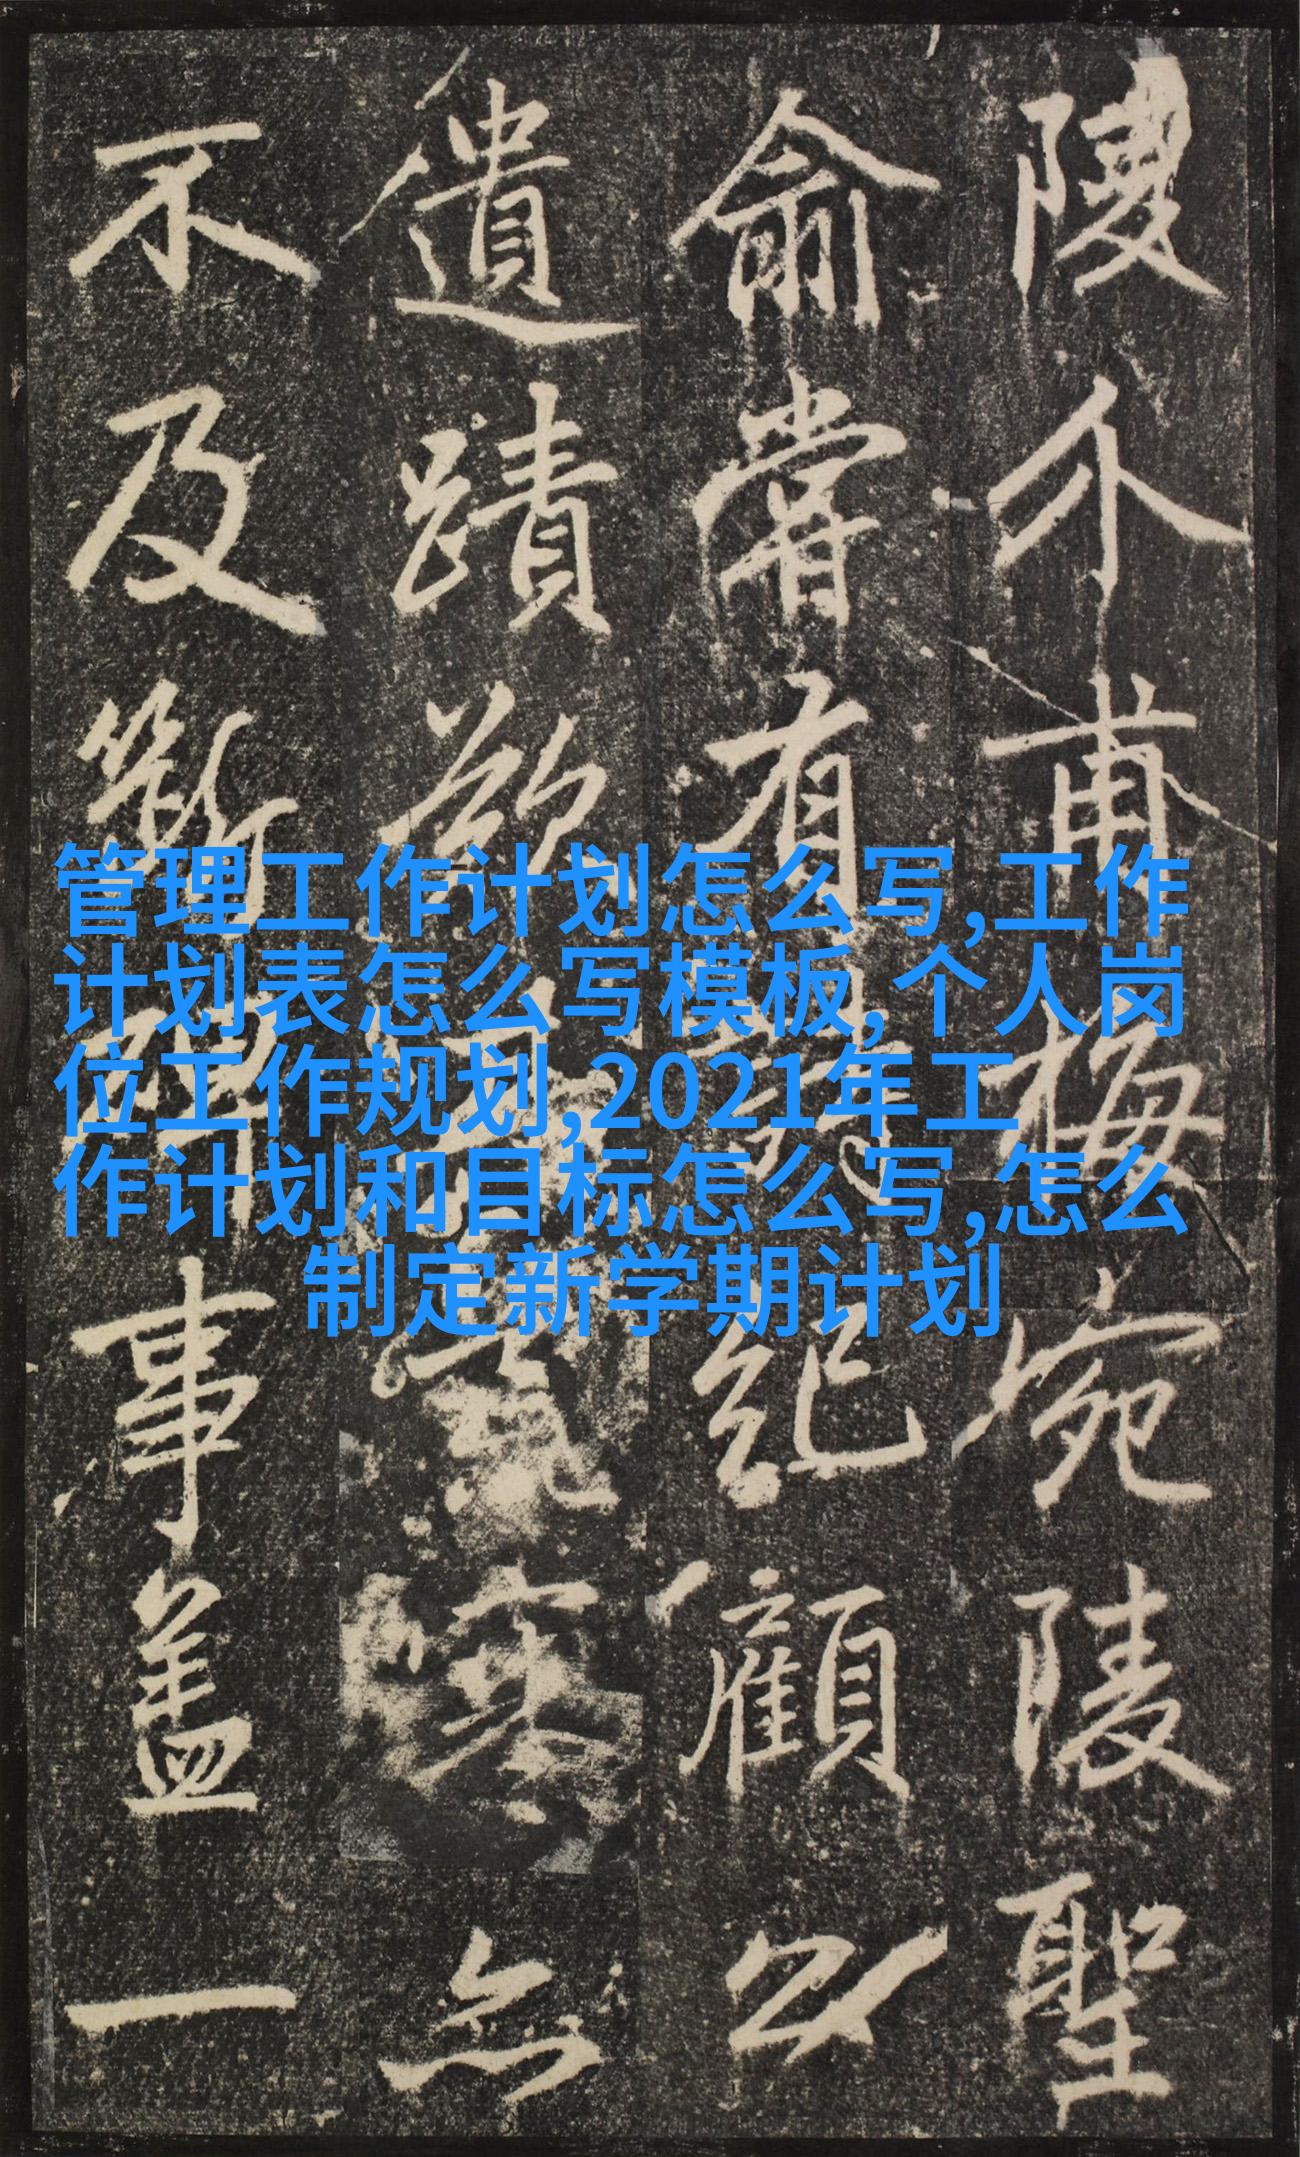 陵介甫梅宛陵聖
俞嘗有詩紀顧公
遺蹟欲寒
不及斷碑事蓋一
管理工作计划怎么写,工作
计划表怎么写模板,个人岗
位工作规划,2021年工
作计划和目标怎么写,怎么
制定新学期计划